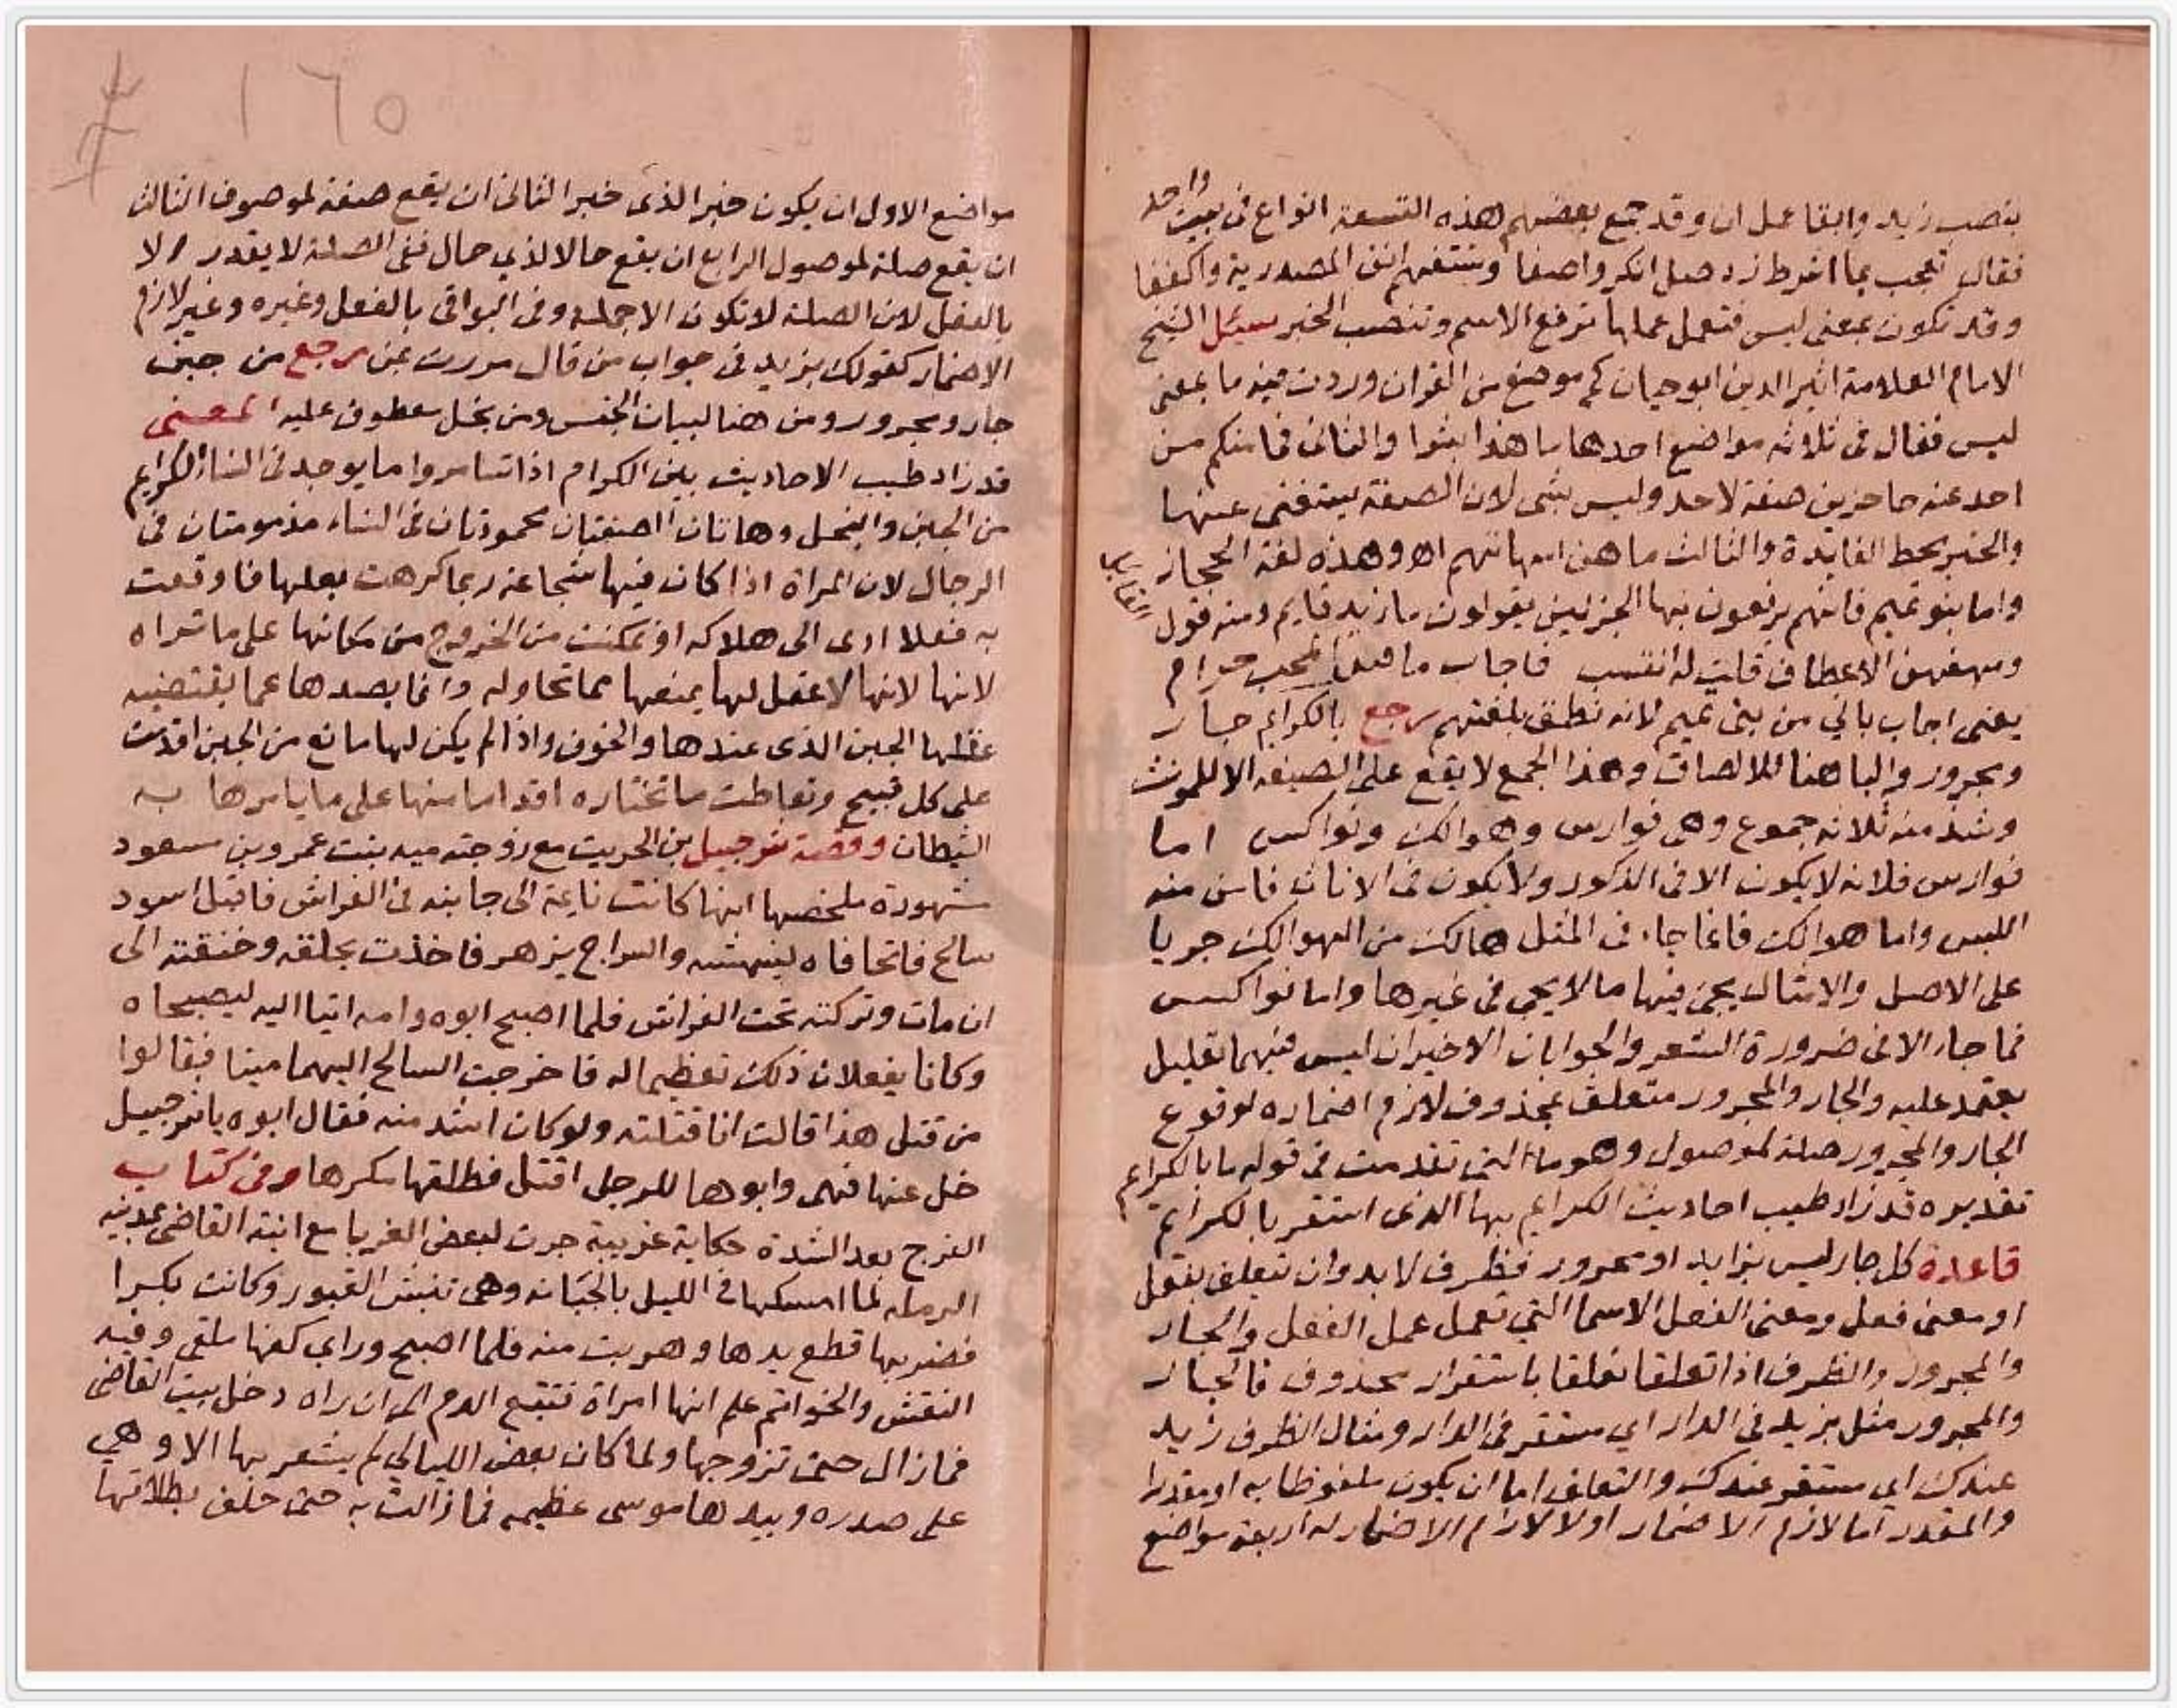 بنصب زيد وابقا عمل ان وقد جمع بعضهم هذه التسعة انواع فى بيت واحد
فقال تعجب بما اشرط زد صل انكر واصفا وبستفهم انف المصدرية واكففا
وقد تكون بمعنى ليس فتعمل عملها ترفع الاسم وتنصب الخبر سئل الشيخ
الامام العلامة اثير الدين ابو حيان كم موضع من القران وردت فيه ما بمعنى
ليس فقال فى ثلاثه مواضع احدها ما هذا بشرا والثانى فما منكم من
احد عنه حاجزين صفة لاحد وليس بشى لان الصفة يستغنى عنها
والخبر محط الفايدة والثالث ما هن امهاتهم اه وهذه لغة الحجاز
واما بنو تميم فانهم يرفعون بها الجزئين يقولون ما زيد قايم ومنه قول
الشاعر
ومهفهف الاعطاف قلت له انتسب فاجاب ما قتل المحب حرام
يعنى اجاب بانى من بنى تميم لانه نطق بلغتهم رجع بالكرايم جار
ومجرور والبا هنا للالصاق وهذا الجمع لا يقع على الصيغه الا للمونث
وشذ منه ثلاثه جموع وهى فوارس وهوالك ونواكس اما
فوارس فلانه لا يكون الا فى الذكور ولا يكون فى الاناث فامن منه
اللبس واما هوالك فانما جاء فى المثل هالك من الهوالك جريا
على الاصل والامثال يجى فيها ما لا يجى فى غيرها واما نواكس
فما جاء الا فى ضرورة الشعر والجوابان الاخيران ليس فيهما تعليل
يعتمد عليه والجار والمجرور متعلق بمحذوف لازم اضماره لوقوع
الجار والمجرور صلة لموصول وهو ما التى تقدمت فى قوله ما بالكرايم
تقديره قد زاد طيب احاديث الكرايم بها الذى استقر بالكرايم
قاعدة كل جار ليس بزايد او مجرور فظرف لا بد وان يتعلق بفعل
او معنى فعل ومعنى الفعل الاسما التى تعمل عمل الفعل والجار
والمجرور والظرف اذا تعلقا تعلقا باستقرار محذوف فالجار
والمجرور مثل بزيد فى الدار اي مستقر فى الدار ومثال الظرف زيد
عندك اي مستقر عندك والتعلق اما ان يكون ملفوظا به او مقدرا
والمقدر اما لازم الاضمار اولا لازم الاضمار له اربعة مواضع
١٦٥
مواضع الاول ان يكون خبر الذى خبر الثانى ان يقع صفة لموصوف الثالث
ان يقع صلة لموصول الرابع ان يقع حالا لذي حال ففى الصلة لا يقدر الا
بالفعل لان الصلة لا تكون الا جملة وفى البواقى بالفعل وغيره وغير لازم
الاضمار كقولك بزيد فى جواب من قال مررت بمن رجع من جبن
جار ومجرور ومن هنا لبيان الجنس ومن بخل معطوف عليه المعنى
قد زاد طيب الاحاديث بين الكرام اذا تسامروا ما يوجد فى النساء الكرايم
من الجبن والبخل وهاتان الصفتان محمودتان فى النساء مذمومتان فى
الرجال لان المراة اذا كان فيها شجاعة ربما كرهت بعلها فاوقعت
به فعلا ادى الى هلاكه او تمكنت من الخروج من مكانها على ما تراه
لانها لانها لا عقل لها يمنعها مما تحاوله وانما يصدها عما يقتضيه
عقلها الجبن الذى عندها والخوف واذا لم يكن لها مانع من الجبن اقدمت
على كل قبيح وتعاطت ما تختاره اقداما منها على ما يامرها به
الشيطان وقصة شرحبيل بن الحريث مع زوجته ميه بنت عمرو بن مسعود
مشهورة ملخصها انها كانت نايمة الى جانبه فى الفراش فاقبل اسود
سالخ فاتحا فاه لينهشه والسراج يزهر فاخذت بحلقه وخنقته الى
ان مات وتركته تحت الفراش فلما اصبح ابوه وامه اتيا اليه ليصبحاه
وكانا يفعلان ذلك تعظيما له فاخرجت السالخ اليهما ميتا فقالوا
من قتل هذا قالت انا قتلته ولو كان اشد منه فقال ابوه يا شرحبيل
خل عنها فهى وابوها للرجل اقتل فطلقها مكرها وفى كتاب
الفرج بعد الشدة حكاية غريبة جرت لبعض الغربا مع ابنة القاضى بمدينه
الرمله لما امسكها فى الليل بالجبانه وهى تنبش القبور وكانت بكرا
فضربها قطع يدها وهربت منه فلما اصبح وراي كفها ملقى وفيه
النقش والخواتم علم انها امراة فتتبع الدم الى ان راه دخل بيت القاضى
فما زال حتى تزوجها ولما كان بعض الليالي لم يشعر بها الا وهي
على صدره وبيدها موسى عظيمه فما زالت به حتى حلف بطلاقها